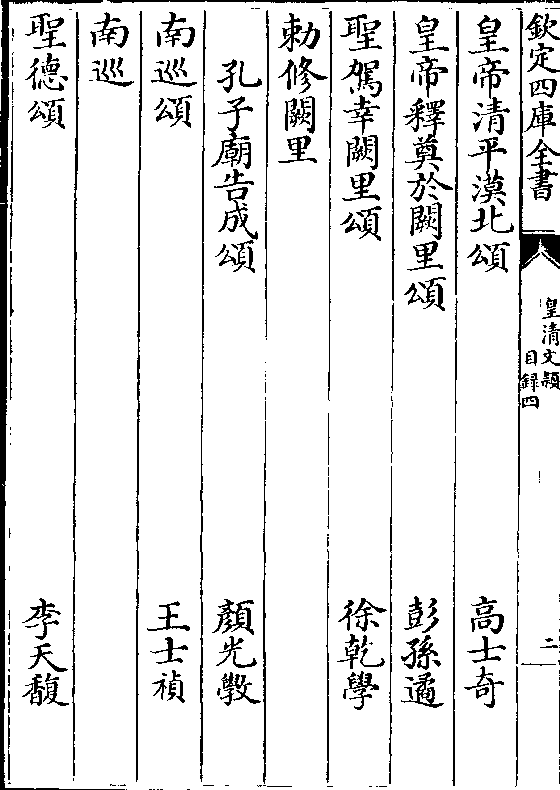 欽定四庫全書
皇清文穎
目錄四
二
皇帝清平漠北頌 高士奇
皇帝釋奠於闕里頌 彭孫遹
聖駕幸闕里頌 徐乾學
勅修闕里
孔子廟告成頌 顏光斆
南巡頌 王士禎
南巡
聖德頌 李天馥